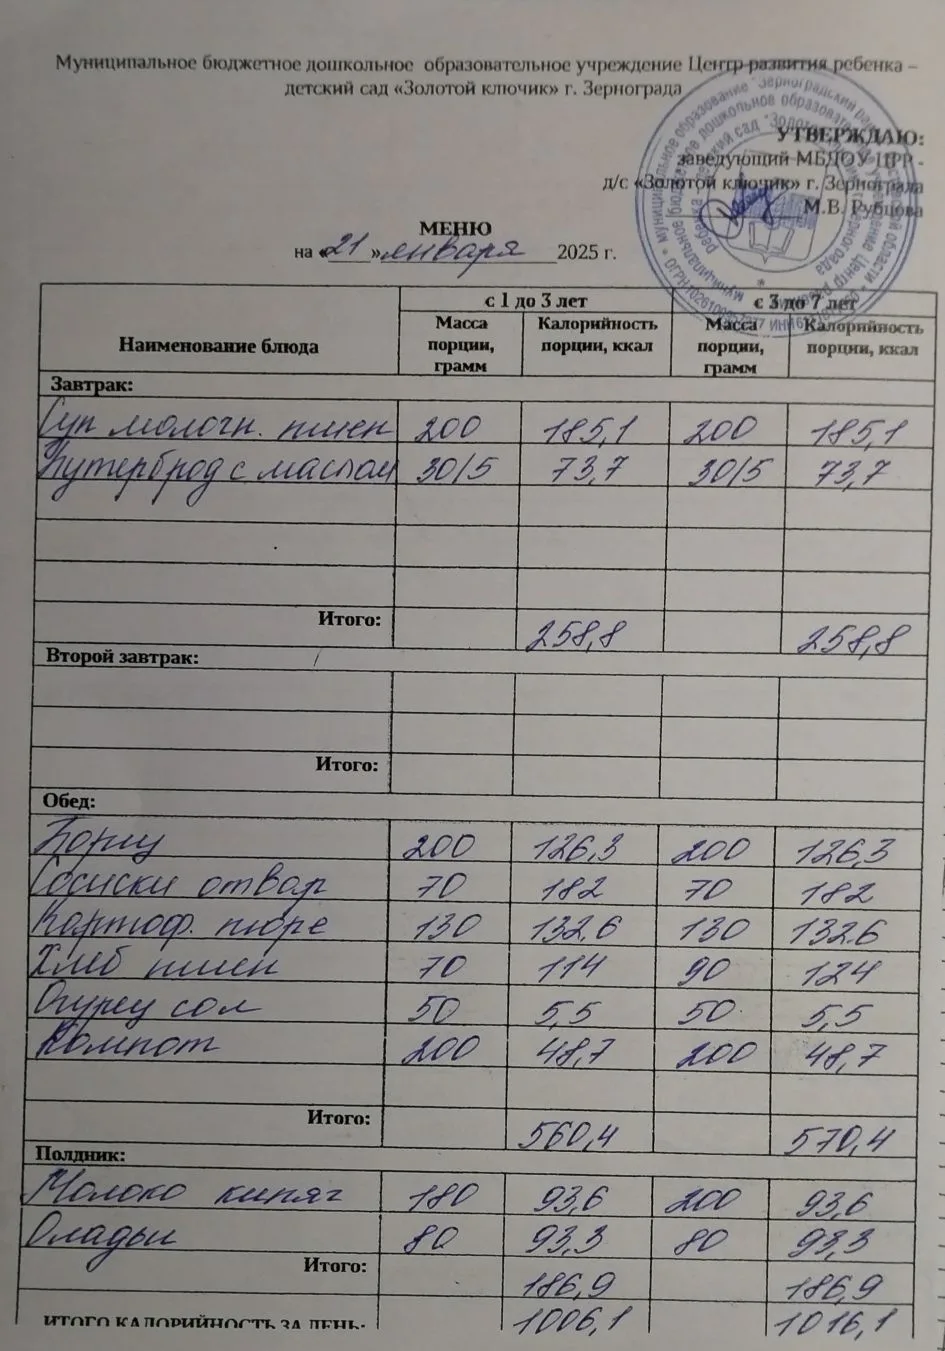 Муниципальное бюджетное дошкольное образовательное учреждение Центр развития ребенка –
детский сад «Золотой ключик» г. Зернограда
УТВЕРЖДАЮ:
заведующий МБДОУ ЦРР -
д/с «Золотой ключик» г. Зернограда
М.В. Рубцова
МЕНЮ
на «21» января 2025 г.
Наименование блюда с 1 до 3 лет с 3 до 7 лет
Масса порции, грамм Калорийность порции, ккал Масса порции, грамм Калорийность порции, ккал
Завтрак:
Суп молочн. пшен 200 185,1 200 185,1
Бутерброд с маслом 30/5 73,7 30/5 73,7
Итого: 258,8 258,8
Второй завтрак:
Итого:
Обед:
Борщ 200 126,3 200 126,3
Сосиски отвар 70 182 70 182
Картоф. пюре 130 132,6 130 132,6
Хлеб пшен 70 114 90 124
Огурец сол 50 5,5 50 5,5
Компот 200 48,7 200 48,7
Итого: 560,4 570,4
Полдник:
Молоко кипяч 180 93,6 200 93,6
Оладьи 80 93,3 80 93,3
Итого: 186,9 186,9
ИТОГО КАЛОРИЙНОСТЬ ЗА ДЕНЬ: 1006,1 1016,1